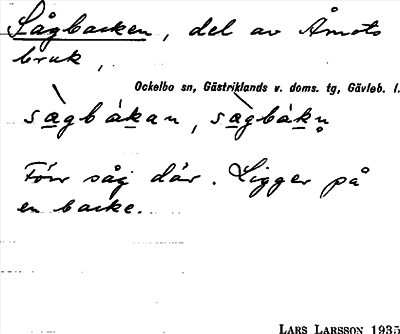 Sågbacken, del av Åmots
bruk,
Ockelbo sn, Gästriklands v. doms. tg, Gävleb. l.
sàgbákan, sàgbákn̥
Förr såg där. Ligger på
en backe.
LARS LARSSON 1935